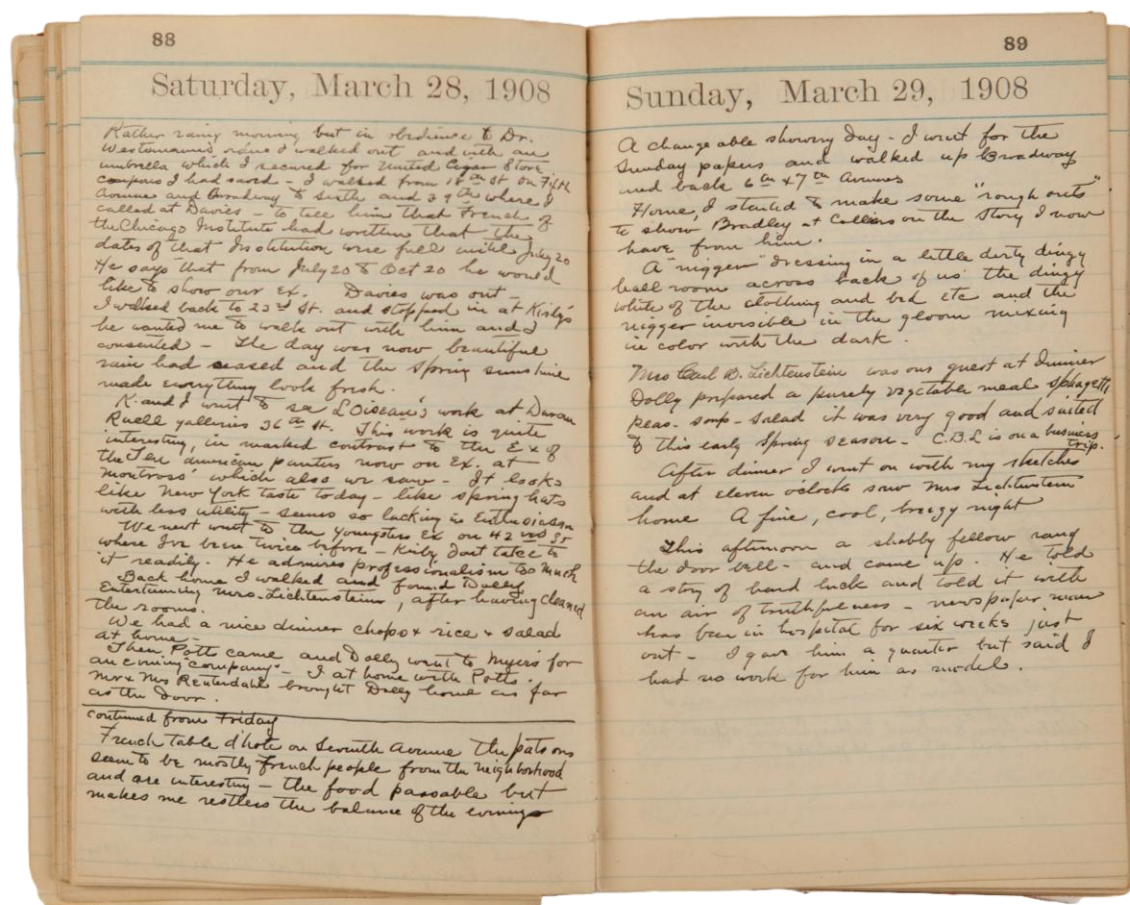 88
Saturday, March 28, 1908
Rather rainy morning but in obedience to Dr.
Westermann's orders I walked out and with an
umbrella which I secured for United Cigar Store
coupons I had saved - I walked from 18th St on Fifth
Avenue and Broadway to Sixth and 39th where I
called at Davies - to tell him that French of
the Chicago Institute had written that the
dates of that Institution were full until July 20
He says that from July 20 to Oct 20 he would
like to show our Ex. Davies was out -
I walked back to 23rd St. and stopped in at Kirby's
he wanted me to walk out with him and I
consented - The day was now beautiful
rain had ceased and the Spring sunshine
made everything look fresh.
K. and I went to see L'Oiseau's work at Duran
Ruell galleries 36th St. This work is quite
interesting, in marked contrast to the Ex of
the Ten American painters now on Ex. at
Montross' which also we saw - It looks
like New York taste today - like spring hats
with less utility - seems so lacking in Enthusiasm
We next went to the Youngsters Ex on 42nd St
where I've been twice before - Kirby don't take to
it readily. He admires professionalism too much
Back home I walked and found Dolly
Entertaining Mrs. Lichtenstein, after having cleaned
the rooms.
We had a nice dinner chops + rice + salad
at home -
Then Potts came and Dolly went to Myers' for
an evening "company" - I at home with Potts.
Mr + Mrs Reuterdahl brought Dolly home as far
as the door.
continued from Friday
French table d'hote on Seventh Avenue the patrons
seem to be mostly French people from the neighborhood
and are interesting - the food passable but
makes me restless the balance of the evening
89
Sunday, March 29, 1908
A changeable showery day - I went for the
Sunday papers and walked up Broadway
and back 6th + 7th Avenues
Home, I started to make some "rough outs"
to show Bradley at Colliers on the Story I now
have from him.
A "nigger" dressing in a little dirty dingy
hall room across back of us the dingy
white of the clothing and bed etc and the
nigger invisible in the gloom mixing
in color with the dark.
Mrs Carl B. Lichtenstein was our guest at dinner
Dolly prepared a purely vegetable meal sphagetti
peas - soup - salad it was very good and suited
to this early Spring season - C.B.L is on a business
trip.
After dinner I went on with my sketches
and at eleven o'clock saw Mrs Lichtenstein
home A fine, cool, breezy night
This afternoon a shabby fellow rang
the door bell - and came up. He told
a story of hard luck and told it with
an air of truthfulness - newspaper man
has been in hospital for six weeks just
out - I gave him a quarter but said I
had no work for him as model.